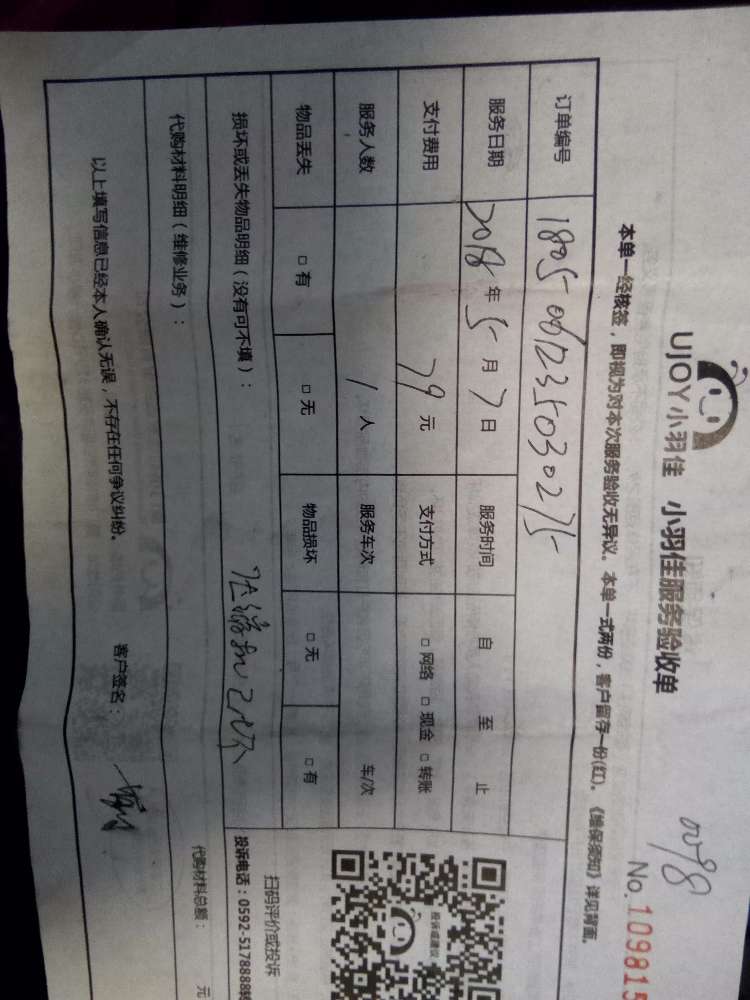 UJOY小羽佳 小羽佳服务验收单
No.109815
本单一经核签，即视为对本次服务验收无异议。本单一式两份，客户留存一份(红)。《维保须知》详见背面。
订单编号 1805061235030275
服务日期 2018年5月7日 服务时间 自 至 止
支付费用 79元 支付方式 □网络 □现金 □转账
服务人数 1人 服务车次 车/次
物品丢失 □有 □无 物品损坏 □无 □有
损坏或丢失物品明细（没有可不填）：
代购材料明细（维修业务）：
代购材料总额： 元
以上填写信息已经本人确认无误，不存在任何争议纠纷。 客户签名：
投诉或建议
扫码评价或投诉
投诉电话：0592-5178888转